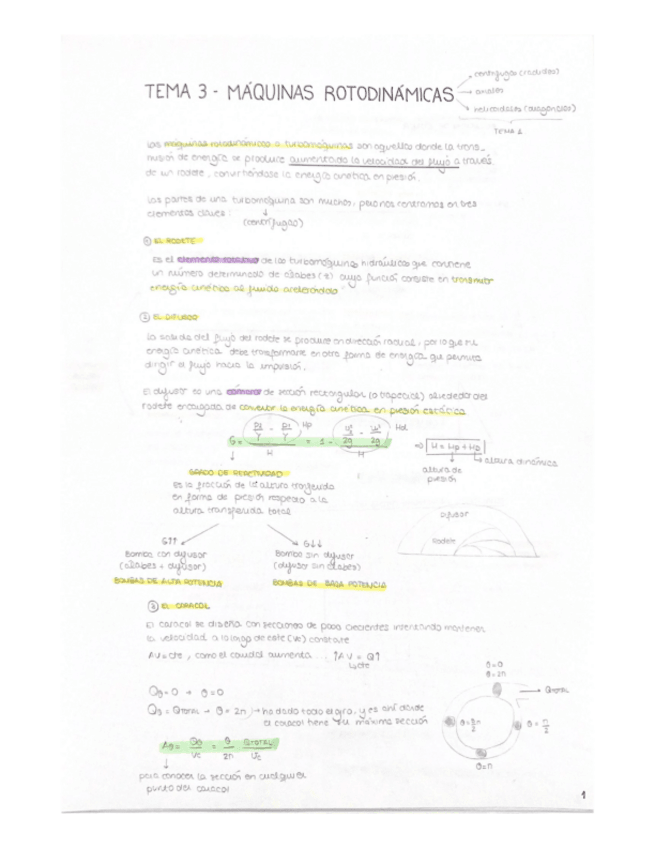 TEMA 3 - MÁQUINAS ROTODINÁMICAS
centrífugas (radiales)
axiales
helicoidales (diagonales)
Tema 1
Las máquinas rotodinámicas o turbomáquinas son aquellas donde la trans-
misión de energía se produce aumentando la velocidad del flujo a través
de un rodete, convirtiéndose la energía cinética en presión.
Las partes de una turbomáquina son muchas, pero nos centramos en tres
elementos claves:
(centrífugas)
① EL RODETE
Es el elemento rotativo de las turbomáquinas hidráulicas que contiene
un número determinado de álabes (z) cuya función consiste en transmitir
energía cinética al fluido acelerándolo
② EL DIFUSOR
La salida del flujo del rodete se produce en dirección radial, por lo que su
energía cinética debe transformarse en otra forma de energía que permita
dirigir el flujo hacia la impulsión.
El difusor es una cámara de sección rectangular (o trapecial) alrededor del
rodete encargada de convertir la energía cinética en presión estática
Hp Hd
G= = 1 -
H H
⇒ H = Hp + Hd
altura de presión
altura dinámica
GRADO DE REACTIVIDAD
Es la fracción de la altura transferida
en forma de presión respecto a la
altura transferida total
difusor
Rodete
G↑↑
Bomba con difusor
(álabes + difusor)
BOMBAS DE ALTA POTENCIA
G↓↓
Bomba sin difusor
(difusor sin álabes)
BOMBAS DE BAJA POTENCIA
③ EL CARACOL
El caracol se diseña con secciones de paso crecientes intentando mantener
la velocidad a lo largo de este (Vc) constante
AV=cte, como el caudal aumenta ... ↑AV = Q↑
cte
θ=0
θ=2π
QTOTAL
Qθ=0 → θ=0
Qθ = QTOTAL → θ = 2π → ha dado todo el giro, y es ahí donde
el caracol tiene su máxima sección
θ = π/2
θ=π
Aθ = Qθ/Vc = θ/2π QTOTAL/Vc
para conocer la sección en cualquier
punto del caracol
1